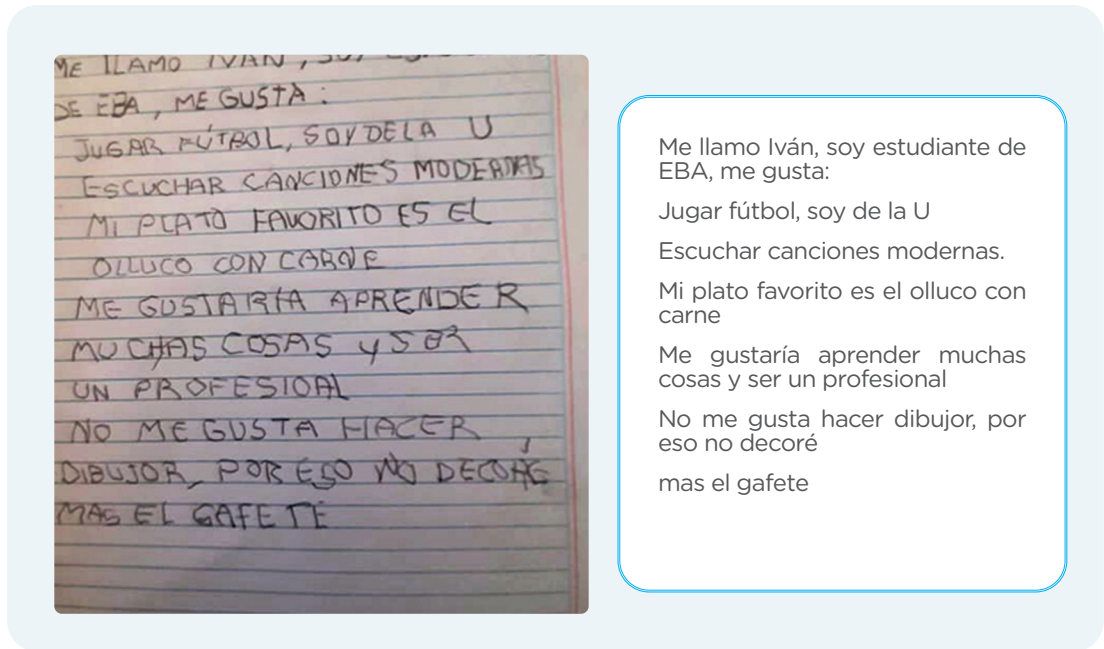 ME LLAMO IVAN, SOY
DE EBA, ME GUSTA:
JUGAR FÚTBOL, SOY DE LA U
ESCUCHAR CANCIONES MODERNAS
MI PLATO FAVORITO ES EL
OLLUCO CON CARNE
ME GUSTARÍA APRENDER
MUCHAS COSAS Y SER
UN PROFESIOAL
NO ME GUSTA HACER
DIBUJOR, POR ESO NO DECORÉ
MAS EL GAFETE
Me llamo Iván, soy estudiante de
EBA, me gusta:
Jugar fútbol, soy de la U
Escuchar canciones modernas.
Mi plato favorito es el olluco con
carne
Me gustaría aprender muchas
cosas y ser un profesional
No me gusta hacer dibujor, por
eso no decoré
mas el gafete